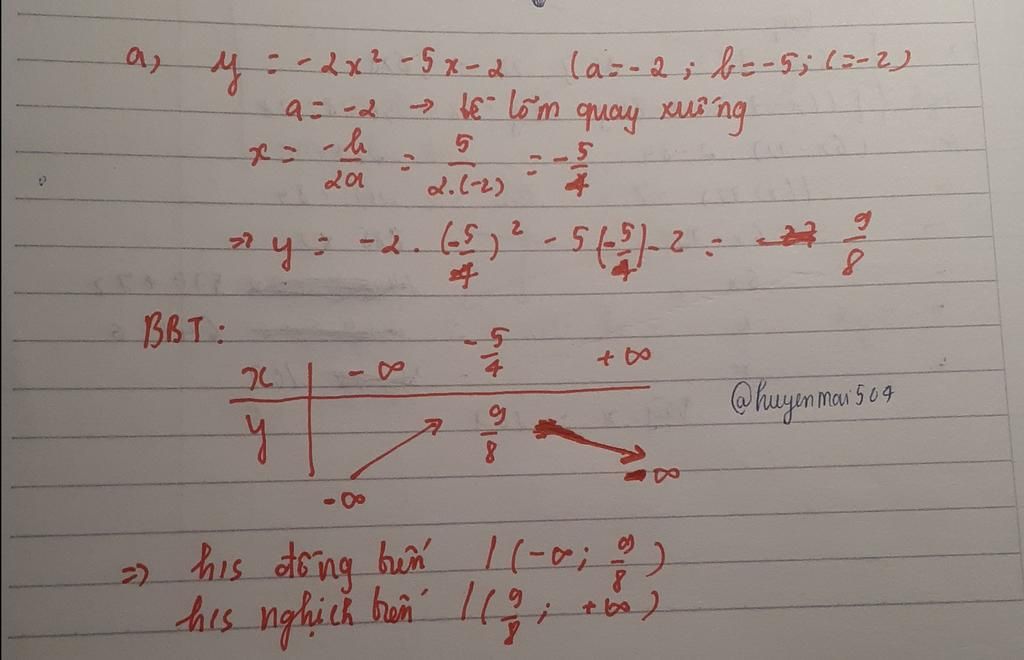 a, y = -2x² - 5x - 2 (a = -2 ; b = -5 ; c = -2)
a = -2 → bề lõm quay xuống
x = -b/2a = 5/2.(-2) = -5/4
=> y = -2 . (-5/4)² - 5(-5/4) - 2 = 9/8
BBT :
x -∞ -5/4 +∞
y 9/8
-∞ -∞
@huyenmai504
=> h/s đồng biến / (-∞ ; 9/8)
h/s nghịch biến / (9/8 ; +∞)